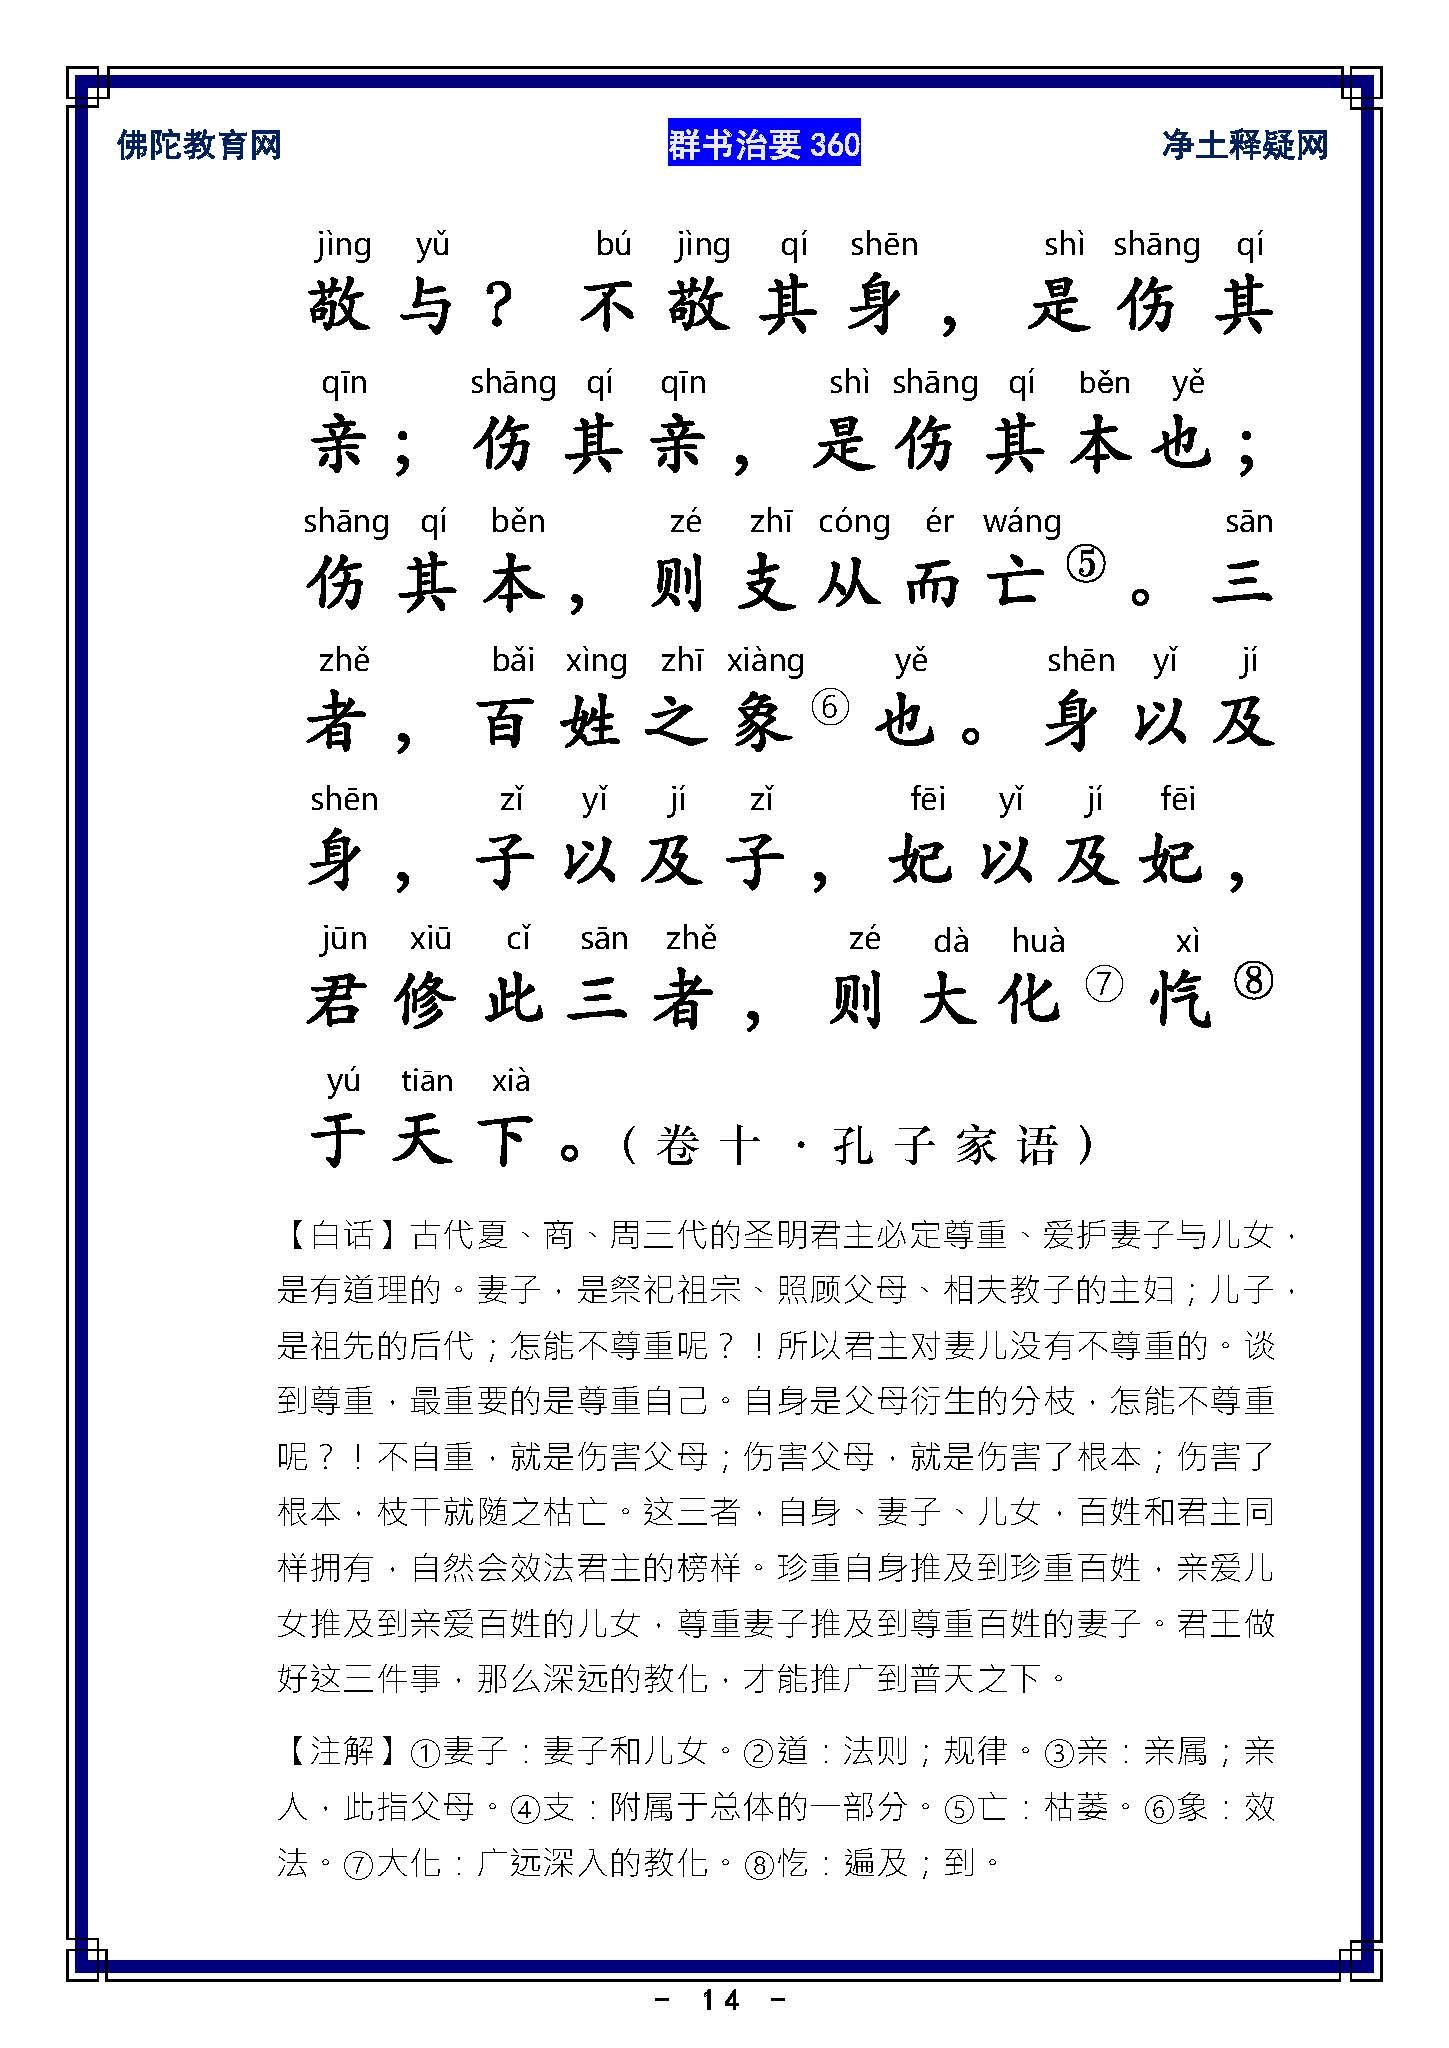 佛陀教育网 群书治要 360 净土释疑网
jìng yǔ bú jìng qí shēn shì shāng qí
敬与？不敬其身，是伤其
qīn shāng qí qīn shì shāng qí běn yě
亲；伤其亲，是伤其本也；
shāng qí běn zé zhī cóng ér wáng sān
伤其本，则支从而亡⑤。三
zhě bǎi xìng zhī xiàng yě shēn yǐ jí
者，百姓之象⑥也。身以及
shēn zǐ yǐ jí zǐ fēi yǐ jí fēi
身，子以及子，妃以及妃，
jūn xiū cǐ sān zhě zé dà huà xì
君修此三者，则大化⑦忾⑧
yú tiān xià
于天下。（卷十·孔子家语）
【白话】古代夏、商、周三代的圣明君主必定尊重、爱护妻子与儿女，
是有道理的。妻子，是祭祀祖宗、照顾父母、相夫教子的主妇；儿子，
是祖先的后代；怎能不尊重呢？！所以君主对妻儿没有不尊重的。谈
到尊重，最重要的是尊重自己。自身是父母衍生的分枝，怎能不尊重
呢？！不自重，就是伤害父母；伤害父母，就是伤害了根本；伤害了
根本，枝干就随之枯亡。这三者，自身、妻子、儿女，百姓和君主同
样拥有，自然会效法君主的榜样。珍重自身推及到珍重百姓，亲爱儿
女推及到亲爱百姓的儿女，尊重妻子推及到尊重百姓的妻子。君王做
好这三件事，那么深远的教化，才能推广到普天之下。
【注解】①妻子：妻子和儿女。②道：法则；规律。③亲：亲属；亲
人，此指父母。④支：附属于总体的一部分。⑤亡：枯萎。⑥象：效
法。⑦大化：广远深入的教化。⑧忾：遍及；到。
- 14 -